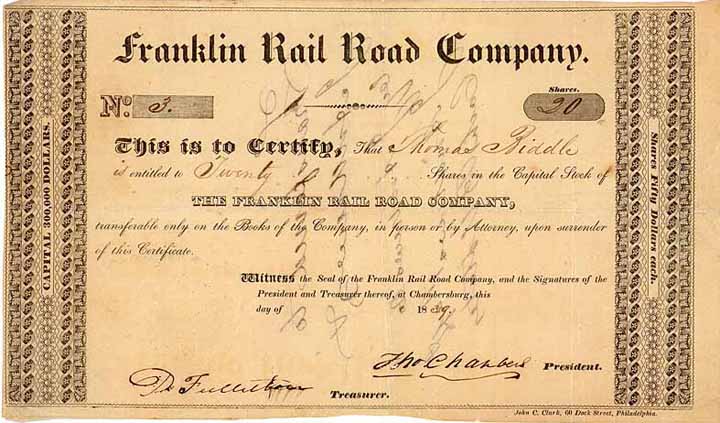 Franklin Rail Road Company.
No. 3.
Shares.
20
This is to Certify, That Thomas Biddle
is entitled to Twenty Shares in the Capital Stock of
THE FRANKLIN RAIL ROAD COMPANY,
transferable only on the Books of the Company, in person or by Attorney, upon surrender
of this Certificate.
Witness the Seal of the Franklin Rail Road Company, and the Signatures of the
President and Treasurer thereof, at Chambersburg, this
day of 18
Tho Chambers President.
Treasurer.
John C. Clark, 60 Dock Street, Philadelphia.
CAPITAL 300,000 DOLLARS.
Shares Fifty Dollars each.